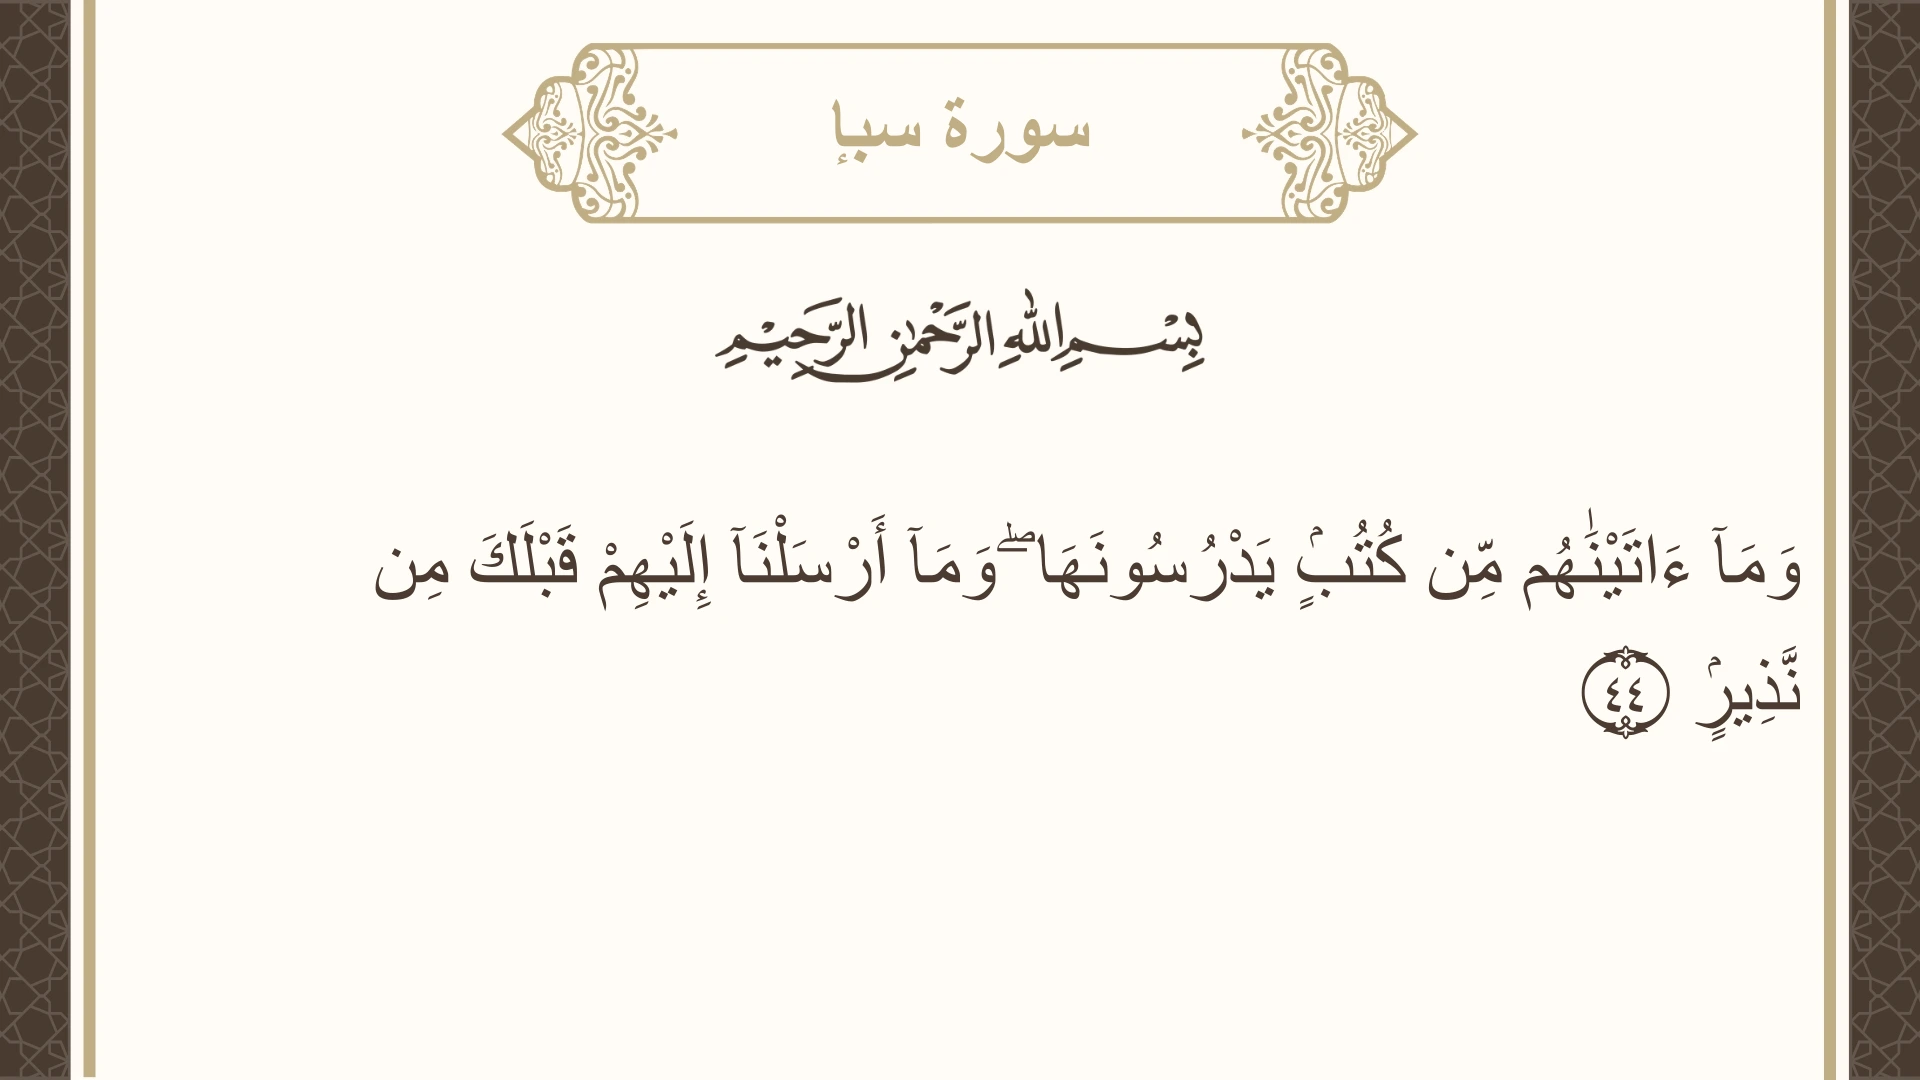 سورة سبإ
بِسْمِ اللهِ الرَّحْمٰنِ الرَّحِيْمِ
وَمَآ ءَاتَيْنَٰهُم مِّن كُتُبٍۢ يَدْرُسُونَهَا ۖ وَمَآ أَرْسَلْنَآ إِلَيْهِمْ قَبْلَكَ مِن
نَّذِيرٍۢ ٤٤